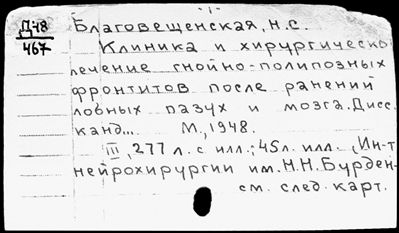 Д-48
467
Благовещенская, Н.С.
Клиника и хирургическо
лечение гнойно-полипозных
фронтитов после ранений
лобных пазух и мозга. Дисс.
канд... М., 1948.
III, 277 л. с илл.; 45 л. илл. (Ин-т
нейрохирургии им. Н.Н. Бурден-
см. след. карт.